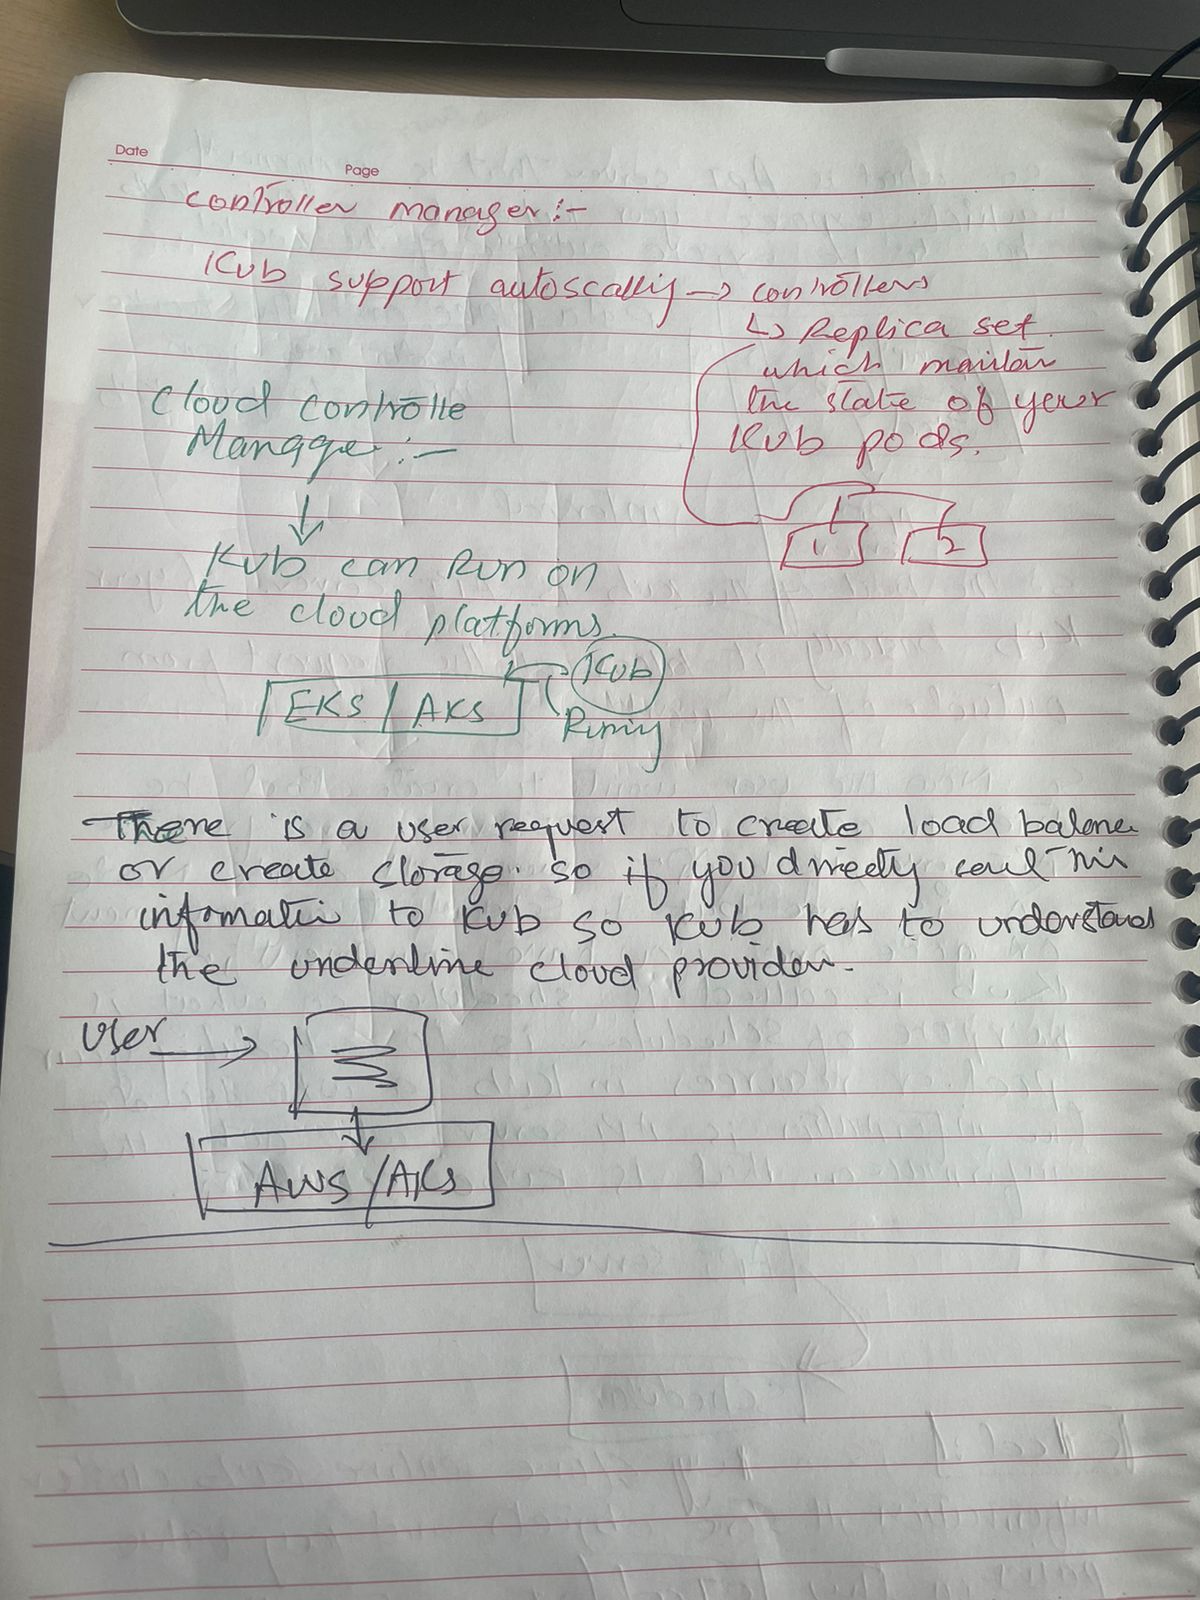 Date
Page
controller manager :-
Kub support autoscallig → controllers
↳ Replica set
which maintan
the state of your
Kub pods.
1 2
Cloud controlle
Manage :-
↓
Kub can Run on
the cloud platforms.
Kub
EKS / AKS
Runing
There is a user request to create load balance
or create storage. so if you directly send this
infomati to Kub so Kub has to understand
the underline cloud provider.
User →
AWS / AKS